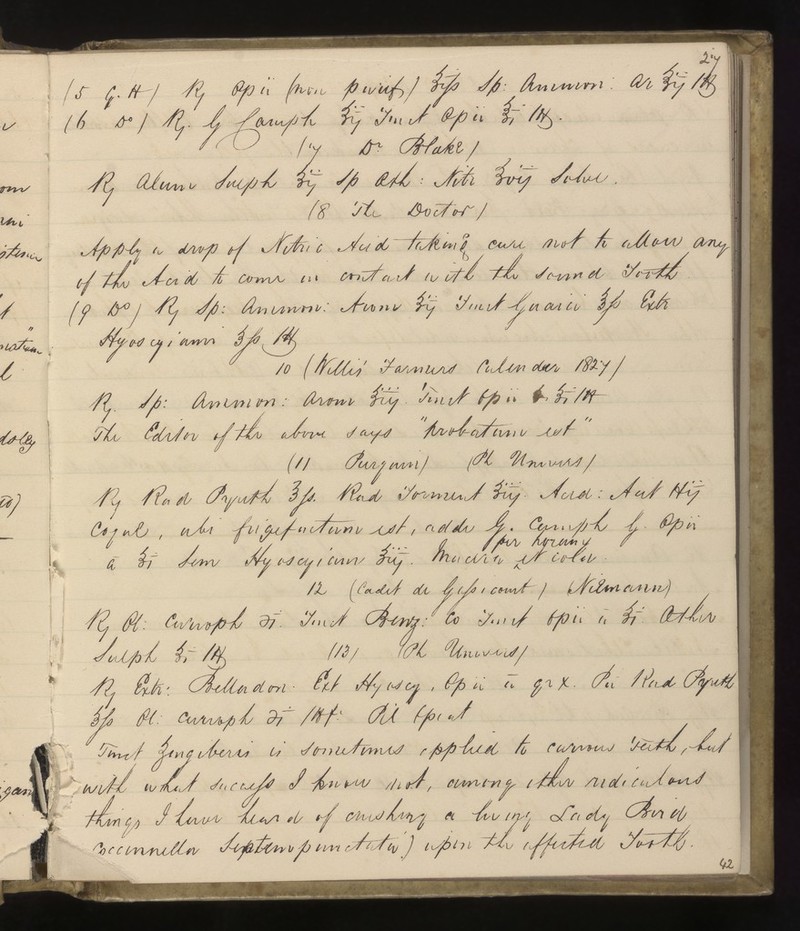 27
(5 G. H) Rx Opii (non purif) ʒiſs Sp: Ammon: Ar ʒij M
(6 Do) Rx. G Camph ʒij Tinct Opii ʒi M.
(7 Dr Blake)
Rx Alum Sulph ʒij Sp Æth: Nitr ʒvij Solve.
(8 The Doctor)
Apply a drop of Nitric Acid taking care not to allow any
of the Acid to come in contact with the sound Tooth
(9 Do) Rx Sp: Ammon: Arom ʒij Tinct Guaici ʒſs Extr
Hyoscyiami ʒſs M
10 (Willis' Farmers Calendar 1827)
Rx. Sp: Ammon: Arom ʒiij Tinct Opii ʒi M
The Editor of the above says "probatum est"
(11 Purgami) (Ph Univers)
Rx Rad Pyreth ʒſs. Rad Torment ʒiij Acid: Acet ℔ij
Coque, ubi frigefactum est, adde G. Camph G. Opii
a ʒi Sem Hyoscyiam ʒiij. Macera per horam et cola
12 (Cadet de Gaſsicourt) (Niemann)
Rx Ol: Caryoph ℈i. Tinct Benz: Co Tinct Opii a ʒi Æther
Sulph ʒi M (13) (Ph Univers)
Rx Extr: Belladon Ext Hyoscy. Opii a gr x. Pu Rad Pyreth
ʒſs Ol: Caryoph ℈i M ft Pil Opeat
Tinct Zingiberis is sometimes applied to carious Teeth, but
with what succeſs I know not, among other ridiculous
things I have heard of crushing a living Lady Bird
(Coccinnella Septempunctata) upon the affected Tooth.
42